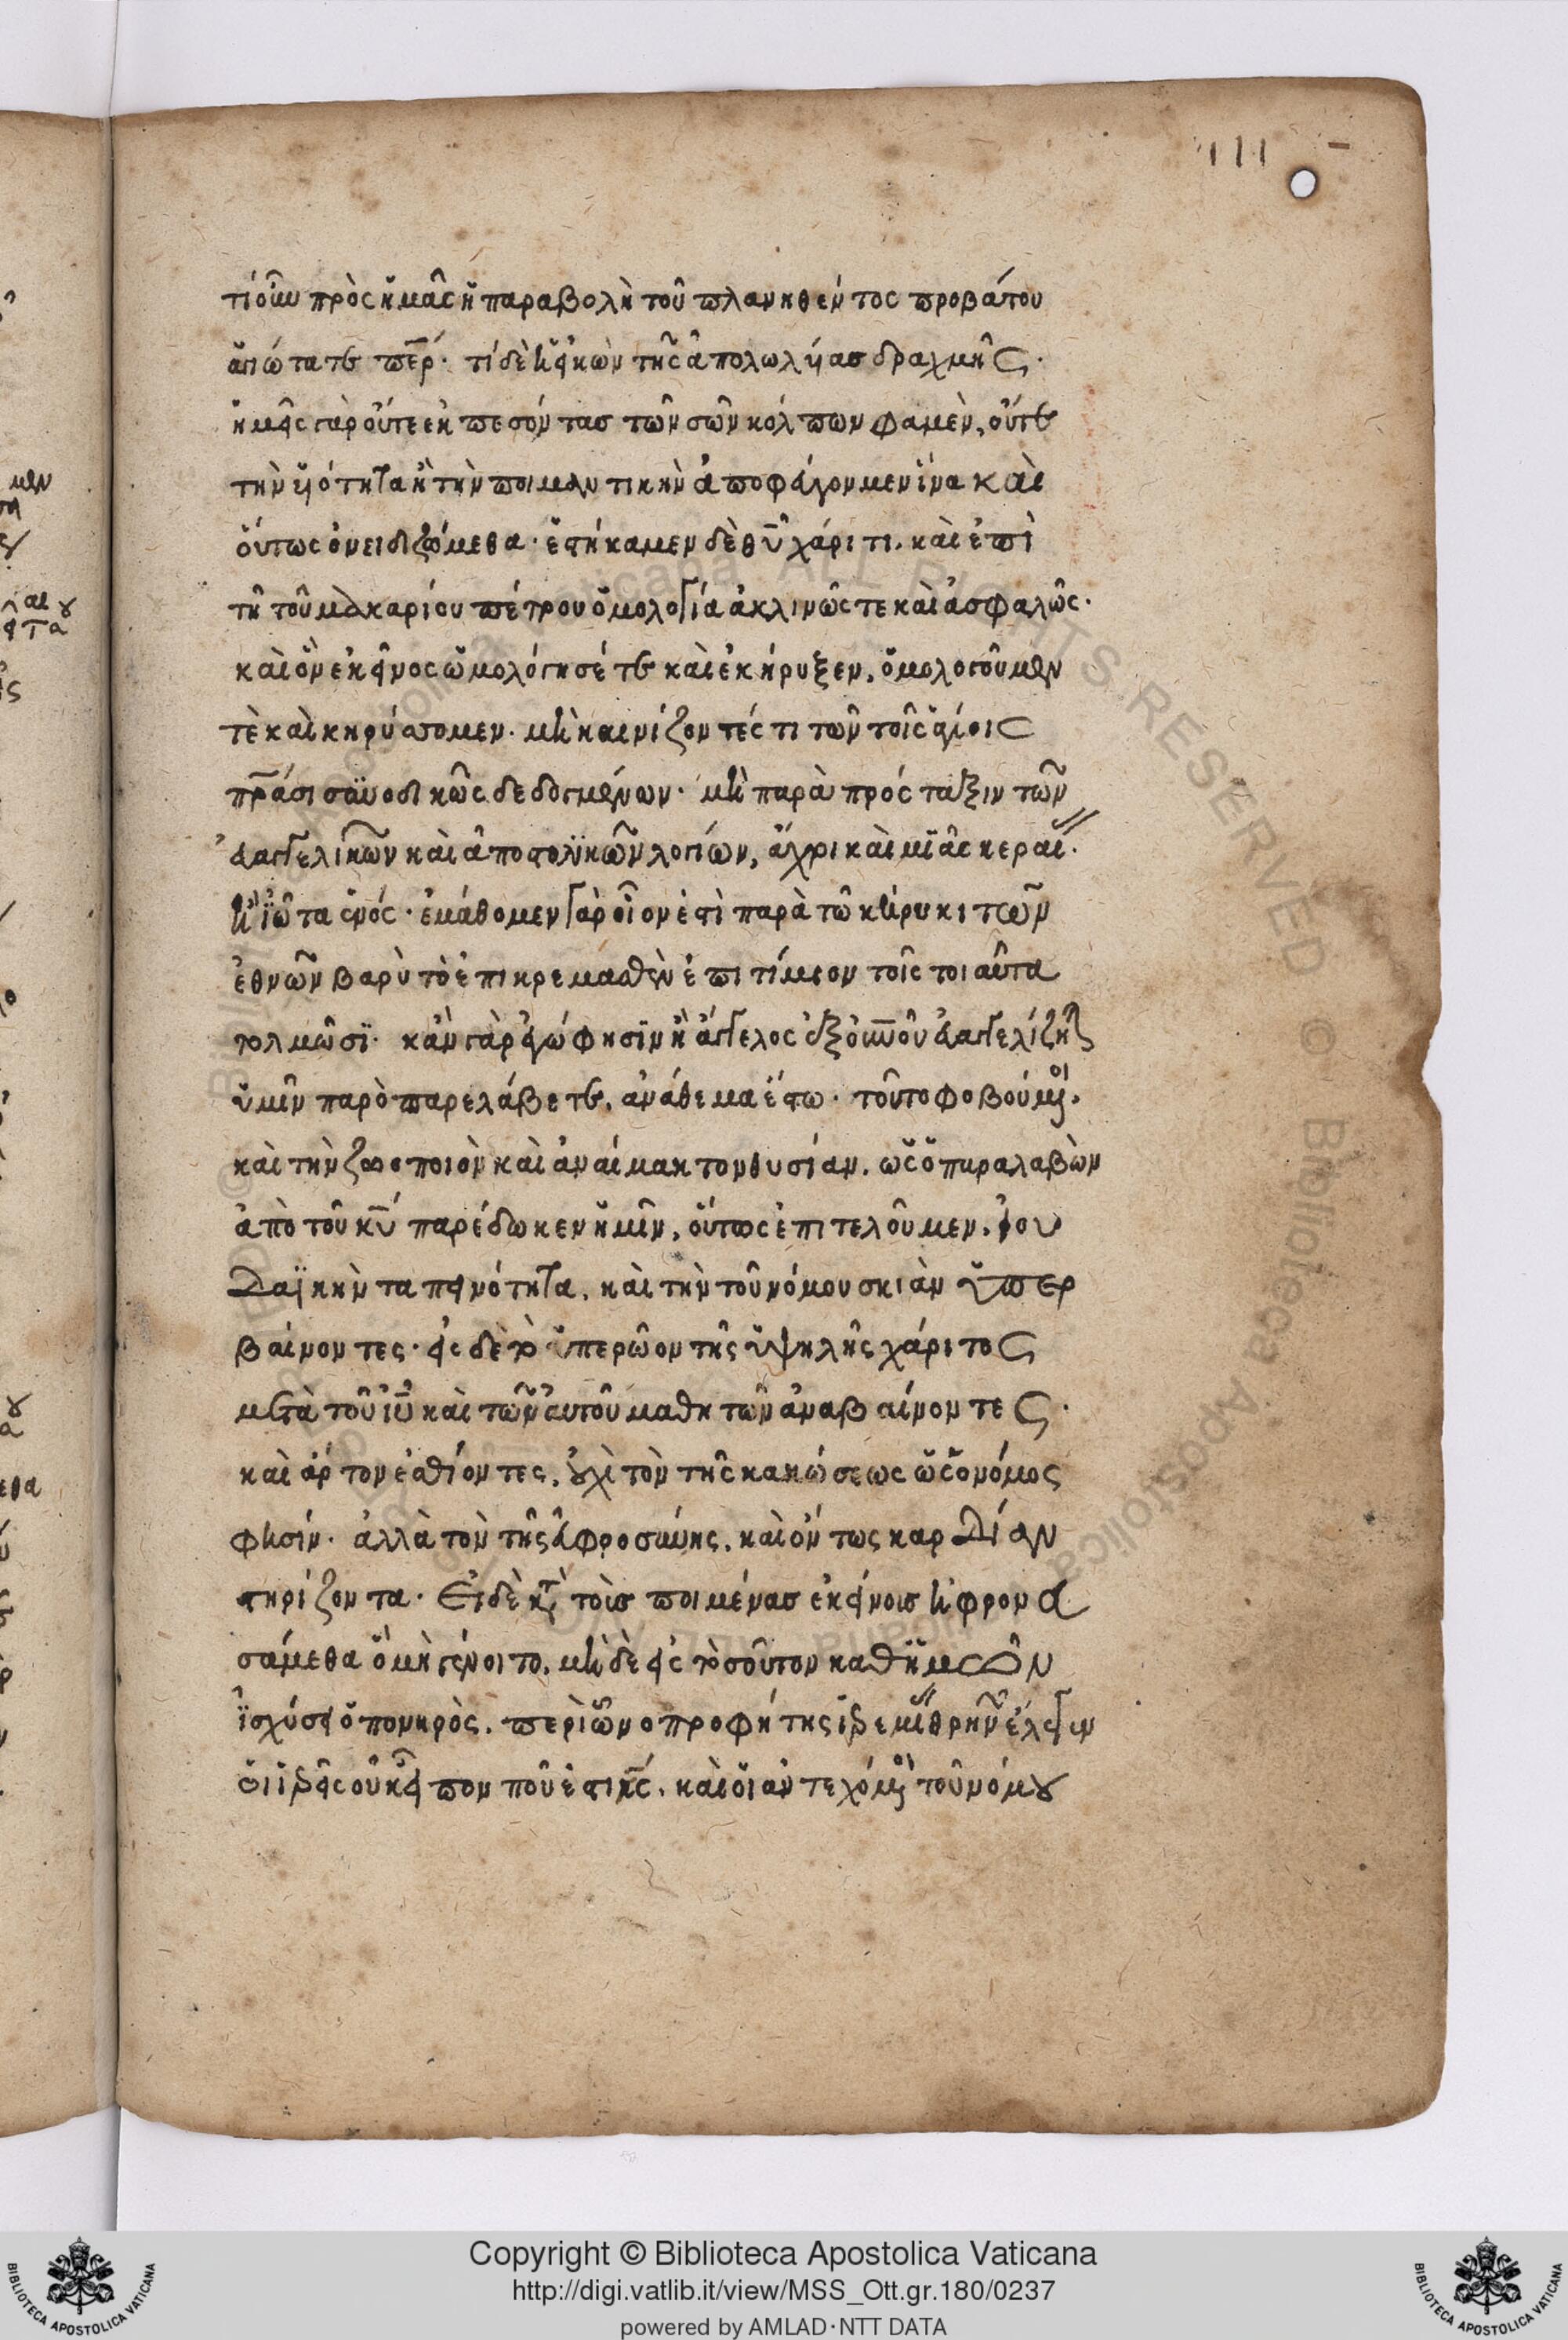 111
τί οὖν πρὸς ἡμᾶς ἡ παραβολὴ τοῦ πλανηθέντος προβάτου
ἁγιώτατε περ· τί δὲ ἡ εἰκὼν τῆς ἀπολωλυίας δραχμῆς·
ἡμεῖς γὰρ οὔτε ἐκπεσόντας τῶν σῶν κόλπων φαμὲν, οὔτε
τὴν υἱότητα ἢ τὴν ποιμαντικὴν ἀποφάγοιμεν ἵνα καὶ
οὕτως ὀνειδιζώμεθα· ἑστήκαμεν δὲ θυ χάριτι, καὶ ἐπὶ
τῆ τοῦ μακαρίου πέτρου ὁμολογία ἀκλινῶς τε καὶ ἀσφαλῶς·
καὶ ὃν ἐκεῖνος ὡμολόγησέ τε καὶ ἐκήρυξεν, ὁμολογοῦμεν
τὲ καὶ κηρύττομεν· μὴ καινίζοντές τι τῶν τοῖς ἁγίοις
πράσι συνοδικῶς δεδογμένων· μὴ παρὰ πρόσταξιν τῶν
εὐαγγελικῶν καὶ ἀποστολικῶν λογίων, ἄχρι καὶ μιᾶς κεραί·
ἢ ἰῶτα ἑνός· ἐμάθομεν γὰρ οἷον ἐστὶ παρὰ τῶ κήρυκι τῶν
ἐθνῶν βαρὺ τὸ ἐπικρεμασθὲν ἐπιτίμιον τοῖς τοιαῦτα
τολμῶσι· κἂν γὰρ ἐγώ φησὶν ἢ ἄγγελος ἐξ οὐνοῦ εὐαγγελίζηται
ὑμῖν παρὸ παρελάβετε, ἀνάθεμα ἔστω· τοῦτο φοβούμοι·
καὶ τὴν ζωοποιὸν καὶ ἀναίμακτον θυσίαν, ὡς ὁ παραλαβὼν
ἀπὸ τοῦ κυ παρέδωκεν ἡμῖν, οὕτως ἐπιτελοῦμεν, ἰου
δαϊκὴν ταπεινότητα, καὶ τὴν τοῦ νόμου σκιὰν ὑπερ
βαίνοντες· εἰς δὲ τὸ ὑπερῶον τῆς ὑψηλῆς χάριτος
μετὰ τοῦ ιυ καὶ τῶν αὐτοῦ μαθητῶν ἀναβαίνοντες·
καὶ ἄρτον ἐσθίοντες, οὐχὶ τὸν τῆς κακώσεως ὡς ὁ νόμος
φησίν· ἀλλὰ τὸν τῆς εὐφροσύνης, καὶ ὄντως καρδίαν
στηρίζοντα· Εἰ δὲ κατὰ τοῖς ποιμένας ἐκείνοις ἠφρονευ
σάμεθα ὃ μὴ γένοιτο, μὴ δὲ εἰς τοσοῦτον καθ ἡμῶν
ἰσχύσει ὁ πονηρὸς, περὶ ὧν ὁ προφήτης ἱερεμί θρηνῶν ἔλεγεν
οἱ ἱερεῖς οὐκ εἶπον ποῦ ἐστι κς, καὶ οἱ ἀντεχόμοι τοῦ νόμου
Copyright © Biblioteca Apostolica Vaticana
http://digi.vatlib.it/view/MSS_Ott.gr.180/0237
powered by AMLAD·NTT DATA
BIBLIOTECA APOSTOLICA VATICANA
BIBLIOTECA APOSTOLICA VATICANA